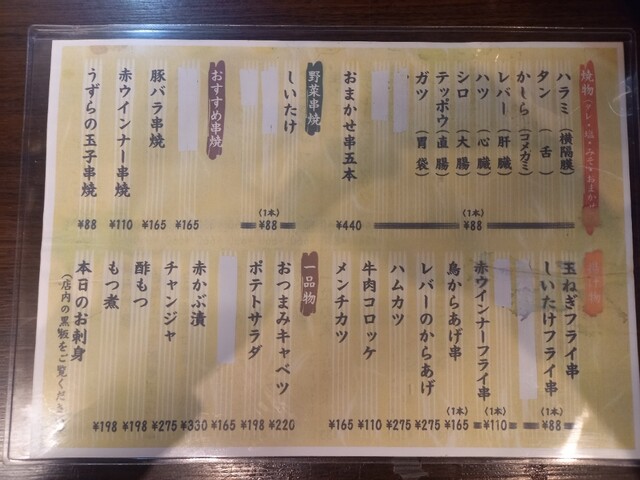 焼物(タレ・塩・みそ・おまかせ)
ハラミ(横隔膜)
タン(舌)
かしら(コメカミ)
レバー(肝臓)
ハツ(心臓)
シロ(大腸)
テッポウ(直腸)
ガツ(胃袋)
(1本)
¥88
おまかせ串五本
¥440
野菜串焼
しいたけ
(1本)
¥88
おすすめ串焼
¥165
豚バラ串焼
¥165
赤ウインナー串焼
¥110
うずらの玉子串焼
¥88
揚げ物
玉ねぎフライ串
しいたけフライ串
(1本)
¥88
赤ウインナーフライ串
(1本)
¥110
鳥からあげ串
(1本)
¥165
レバーのからあげ
¥275
ハムカツ
¥275
牛肉コロッケ
¥110
メンチカツ
¥165
一品物
おつまみキャベツ
¥220
ポテトサラダ
¥198
¥165
赤かぶ漬
¥330
チャンジャ
¥275
酢もつ
¥198
もつ煮
¥198
本日のお刺身
(店内の黒板をご覧くださ